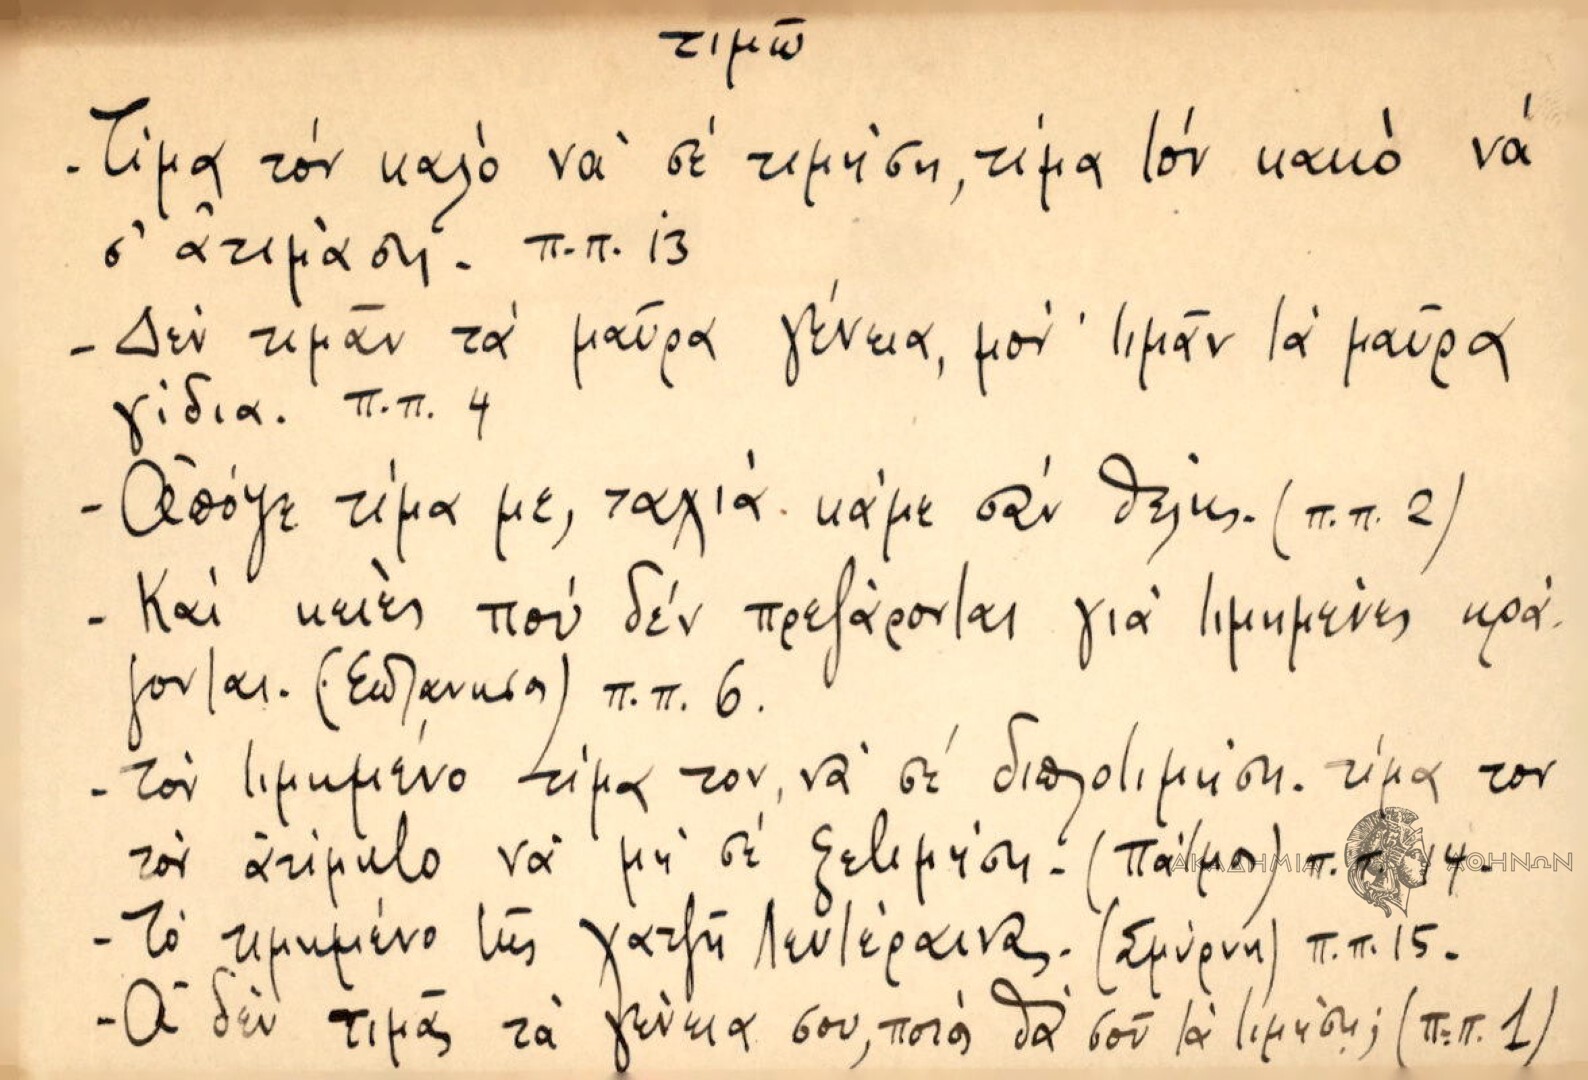 τιμῶ
- Τίμα τόν καλὸ νὰ σέ τιμήση, τίμα τόν κακὸ νά
σ' ἀτιμάση. π.π. 13
- Δέν τιμᾶν τά μαῦρα γένεια, μόν' τιμᾶν τά μαῦρα
γίδια. π.π. 4
- Ἀπόψε τίμα με, ταχιά κάμε σάν θέλης. (π.π. 2)
- Καί κειές πού δέν πρεζάρονται γιά τιμημένες κρά-
ζονται. π.π. 6.
- Τόν τιμημένο τίμα τον, νὰ σέ διπλοτιμήση. τίμα τον
τόν ἀτίμητο νὰ μή σέ ξετιμήση. (Πάτμος) π.π. 14.
- Τό τιμημένο τῆς χατζῆ Λευτέραινας. (Σμύρνη) π.π. 15.
- Ἄ δέν τιμᾶς τὰ γένεια σου, ποιός θὰ σοῦ τά τιμήση; (π.π. 1)
ΑΚΑΔΗΜΙΑ ΑΘΗΝΩΝ